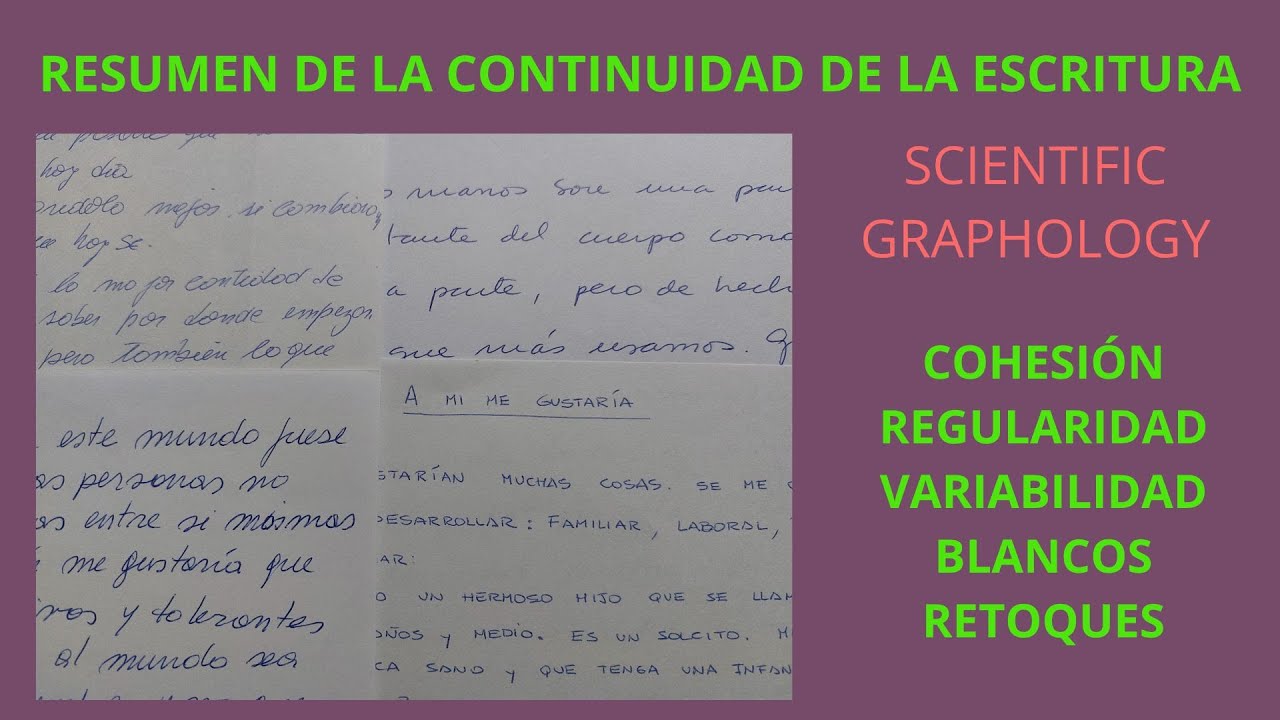 RESUMEN DE LA CONTINUIDAD DE LA ESCRITURA
hoy día
mejor. si
hoy se.
lo mejor cantidad de
saber por donde empezar
pero también lo que
manos son una
del cuerpo como
a parte, pero de
que más usamos.
este mundo fuese
as personas no
os entre si mismas
me gustaría que
y tolerantes
al mundo sea
A MI ME GUSTARÍA
STARÍAN MUCHAS COSAS. SE ME
DESARROLLAR: FAMILIAR, LABORAL,
AR:
O UN HERMOSO HIJO QUE SE LLAM
AÑOS Y MEDIO. ES UN SOLCITO.
CA SANO Y QUE TENGA UNA INFAN
SCIENTIFIC
GRAPHOLOGY
COHESIÓN
REGULARIDAD
VARIABILIDAD
BLANCOS
RETOQUES